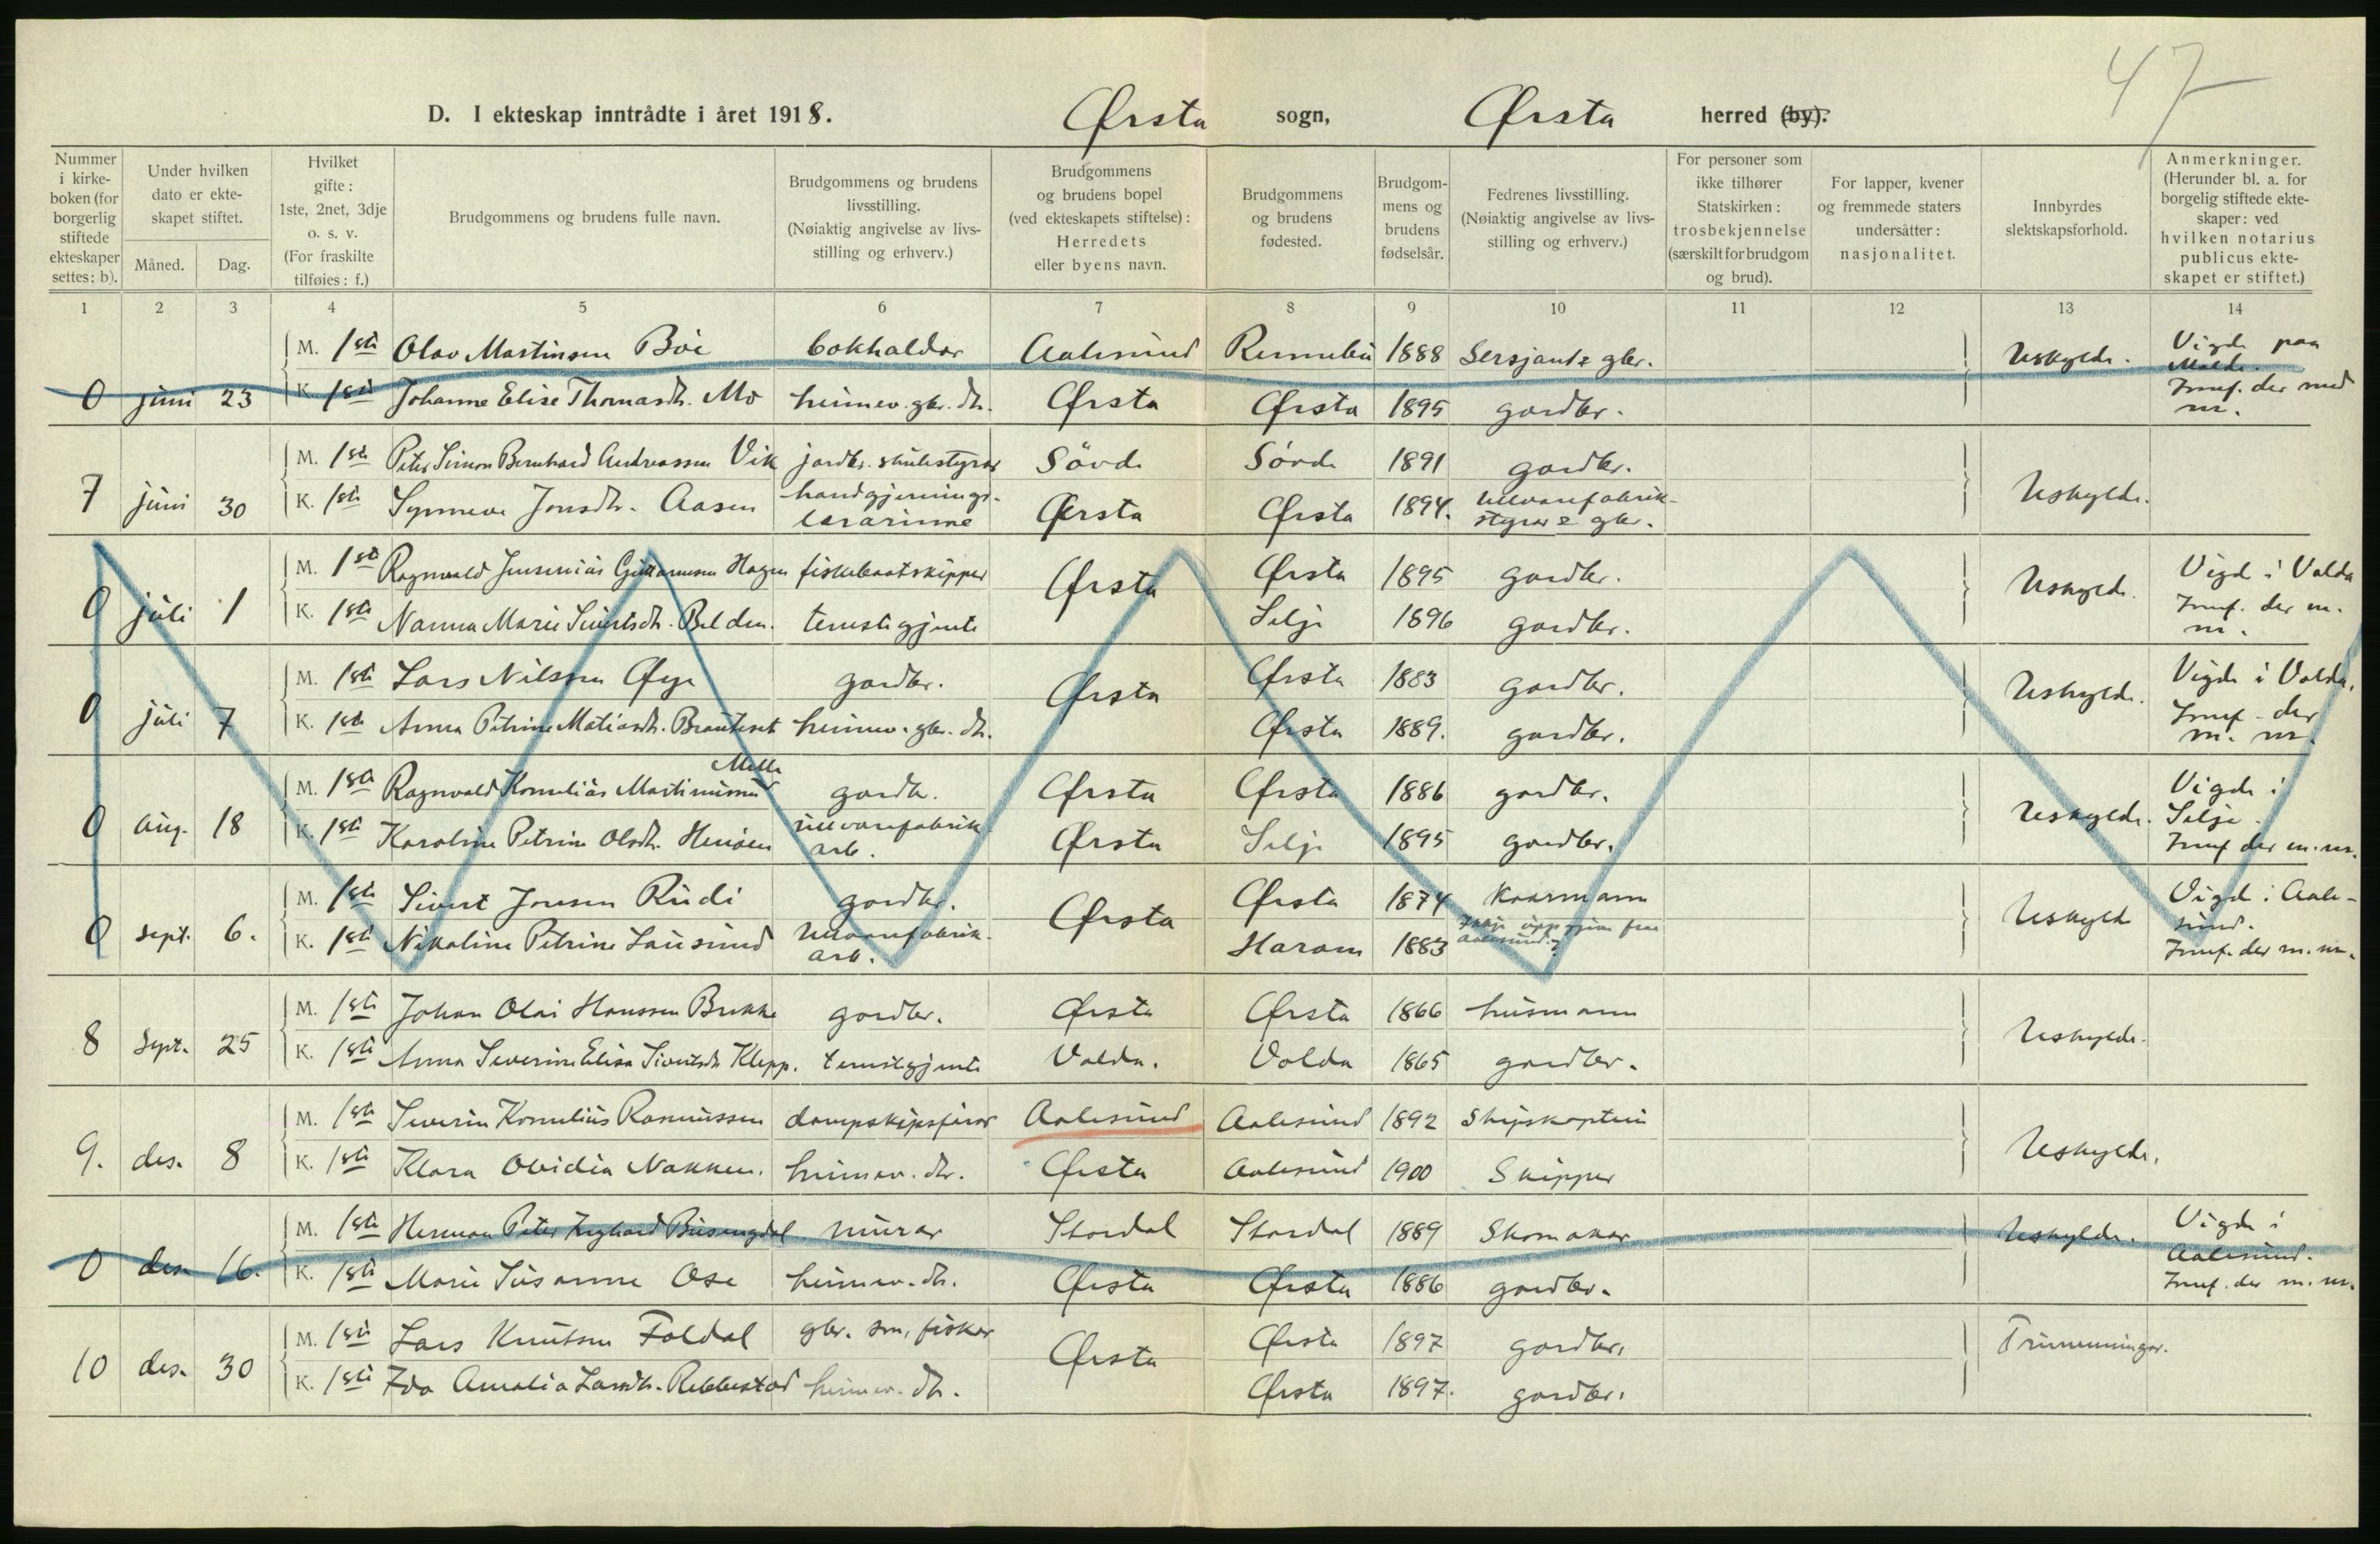 47
D. I ekteskap inntrådte i året 1918. Ørsta sogn, Ørsta herred (by).
Nummer i kirke-boken (for borgerlig stiftede ekteskaper settes: b).
Under hvilken dato er ekte-skapet stiftet.
Måned.
Dag.
Hvilket gifte: 1ste, 2net, 3dje o. s. v. (For fraskilte tilføies: f.)
Brudgommens og brudens fulle navn.
Brudgommens og brudens livsstilling. (Nøiaktig angivelse av livs-stilling og erhverv.)
Brudgommens og brudens bopel (ved ekteskapets stiftelse): Herredets eller byens navn.
Brudgommens og brudens fødested.
Brudgom-mens og brudens fødselsår.
Fedrenes livsstilling. (Nøiaktig angivelse av livs-stilling og erhverv.)
For personer som ikke tilhører Statskirken: trosbekjennelse (særskilt for brudgom og brud).
For lapper, kvener og fremmede staters undersåtter: nasjonalitet.
Innbyrdes slektskapsforhold.
Anmerkninger. (Herunder bl. a. for borgelig stiftede ekte-skaper: ved hvilken notarius publicus ekte-skapet er stiftet.)
1 2 3 4 5 6 7 8 9 10 11 12 13 14
M. 1ste Olav Martinsen Böe bokhaldar Aalesund Rennebu 1888 Sersjant & gbr. Uskylde. Vigde paa Molde.
0 juni 23 K. 1ste Johanne Elise Thomasdtr. Mo heimev. gbr. dtr. Ørsta Ørsta 1895 gardbr. Innf. der med nr.
M. 1ste Peter Simon Bernhard Andreassen Vik jordbr. skulestyrar Sövde Sövde 1891 gardbr.
7 juni 30 K. 1ste Synneve Jonsdtr. Aasen handgjernings-lærarinne Ørsta Ørsta 1894. Ullvarefabrik-styrar & gbr. Uskylde.
M. 1ste Ragnvald Hagen fiskebaatskipper Ørsta Ørsta 1895 gardbr. Uskylde. Vigde i Volda
0 juli 1 K. 1ste Nanna Marie Sivertsdtr. Belden. tenestegjente Selje 1896 gardbr. Innf. der m. nr.
M. 1ste Lars Nilsson Øye gardbr. Ørsta Ørsta 1883 gardbr. Uskylde. Vigde i Volda.
0 juli 7 K. 1ste Anna Petrine Matiasdtr. Brauteset heimev. gbr. dtr. Ørsta 1889. gardbr. Innf. der m. nr.
M. 1ste Ragnvald Kornelius Martinussen Melle gardbr. Ørsta Ørsta 1886 gardbr. Vigde i
0 aug. 18 K. 1ste Karoline Petrine Olsdtr. ullvarefabrik arb. Ørsta Selje 1895 gardbr. Uskylde. Selje. Innf der m. nr.
M. 1ste Sivert Jonsen Rudi gardbr. Ørsta Ørsta 1874 Kaarmann Uskylde Vigde i Aale-sund.
0 sept. 6. K. 1ste Nikoline Petrine Lausund Ullvarefabrik-arb. Haram 1883 Ikkje uppgjeve fraa Aalesund. Innf. der m. nr.
M. 1ste Johan Olai Hanssen Brekke gardbr. Ørsta Ørsta 1866 husmann
8 Sept. 25 K. 1ste Anna Severine Elisa Sivertsdtr Klepp. tenestegjente Volda. Volda 1865 gardbr. Uskylde.
M. 1ste Severin Kornelius Rasmussen dampskipsförar Aalesund Aalesund 1892 Skipskaptein
9. des. 8 K. 1ste Klara Ovidia Nakken. heimev. dtr. Ørsta Aalesund 1900 Skipper Uskylde.
M. 1ste Herman Peter Busengdal murar Stordal Stordal 1889 Skomakar Uskylde. Vigde i Aalesund.
0 des. 16. K. 1ste Marie Susanne Ose heimev. dtr. Ørsta Ørsta 1886 gardbr. Innf. der m. nr.
M. 1ste Lars Knutsen Foldal gbr. son, fiskar Ørsta Ørsta 1897 gardbr. Trimenningar.
10 des. 30 K. 1ste Ida Amalia Larsdtr. Rebbestad heimev. dtr. Ørsta 1897. gardbr.